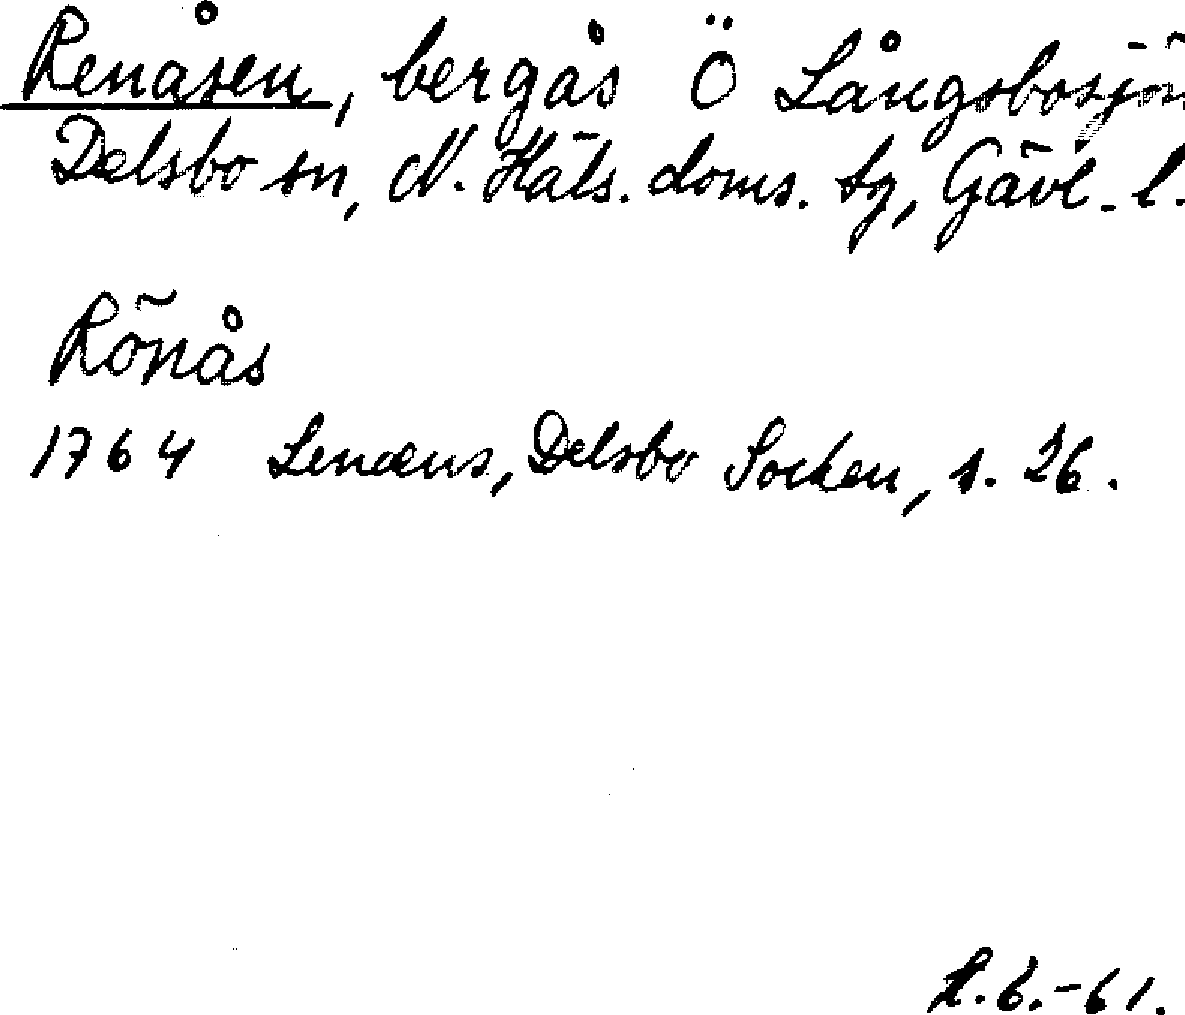 Renåsen, bergås Ö Långsbosjön
Delsbo sn, N. Häls. doms. tg, Gävl. l.
Rönås
1764 Lenæus, Delsbo Socken, s. 26.
H.B.-61.